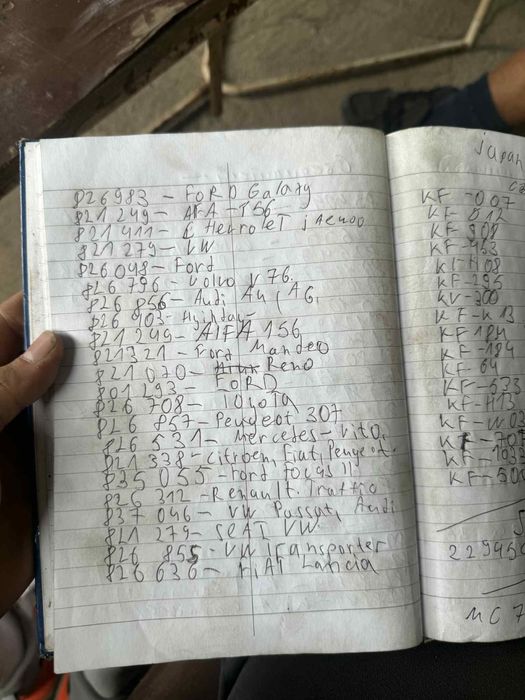 826983 - FORD Galaxy
821 249 - AlFA - 156
821 411 - CHevroleT
821 279 - VW
826 048 - Ford
826 796 - Volvo V 76.
826 856 - Audi A4, A6.
826 903 -
821 249 - AlFA 156
821321 - Ford Mandeo
821 070 - Reno
801 293 - FORD
826 708 - TOyoTA
826 857 - Peugeot 307
826 531 - Mercedes - Vito.
821 338 - citroen, Fiat, Peugeot.
835 055 - Ford focus II
826 312 - Renault. Traffic
837 046 - VW Passat, Audi
821 279 - SEAT VW
826 855 - VW Transporter
826 636 - FiAT Lancia
Japan
KF - 007
KF - 012
KF - 908
KF -
KF - 295
KV - 300
KF - K 13
KF 184
KF - 184
KF 64
KF - 533
KF - H13
KF -
KF -
KF -
KF - 50
22945
MC 7